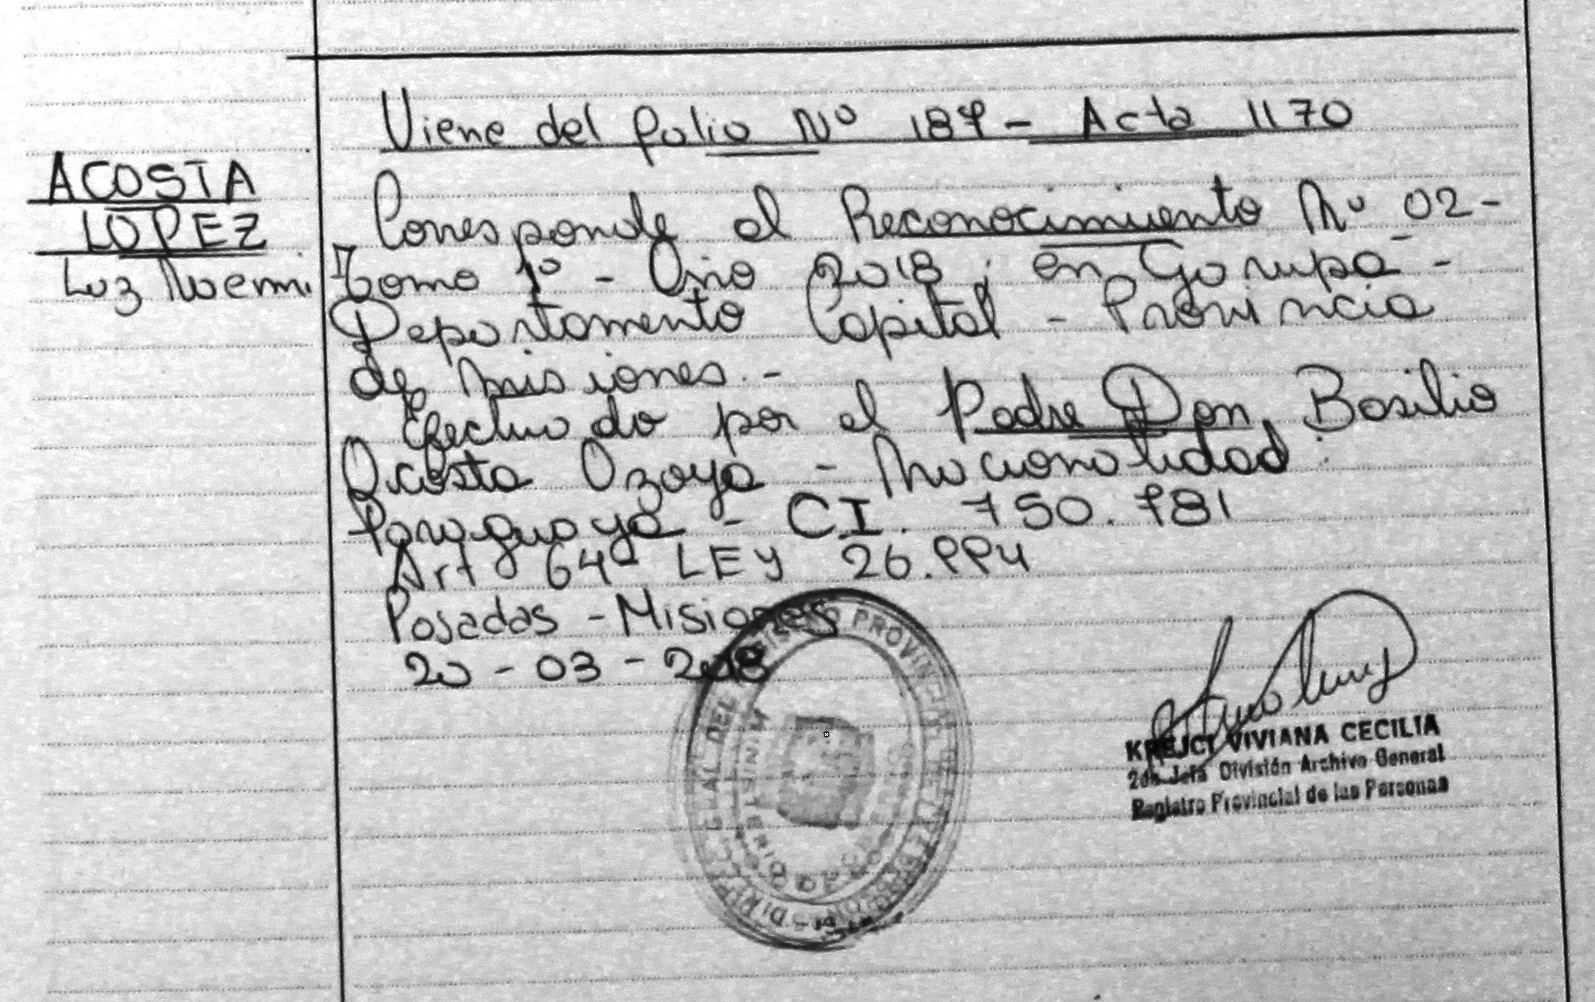 Viene del folio Nº 187 - Acta 1170
ACOSTA
LOPEZ
Luz Noemi
Corresponde al Reconocimiento Nº 02 -
Tomo 1º - Año 2018, en Garupa -
Departamento Capital - Provincia
de Misiones. -
Efectuado por el Padre Don Basilio
Acosta Ozoya - Nacionalidad:
Paraguaya - CI. 750.781
Art 64º LEY 26.994
Posadas - Misiones
20 - 03 - 2018
KREJCI VIVIANA CECILIA
2da Jefa División Archivo General
Registro Provincial de las Personas
PROVINCIAL DE LAS PERSONAS
MINISTERIO DE GOBIERNO